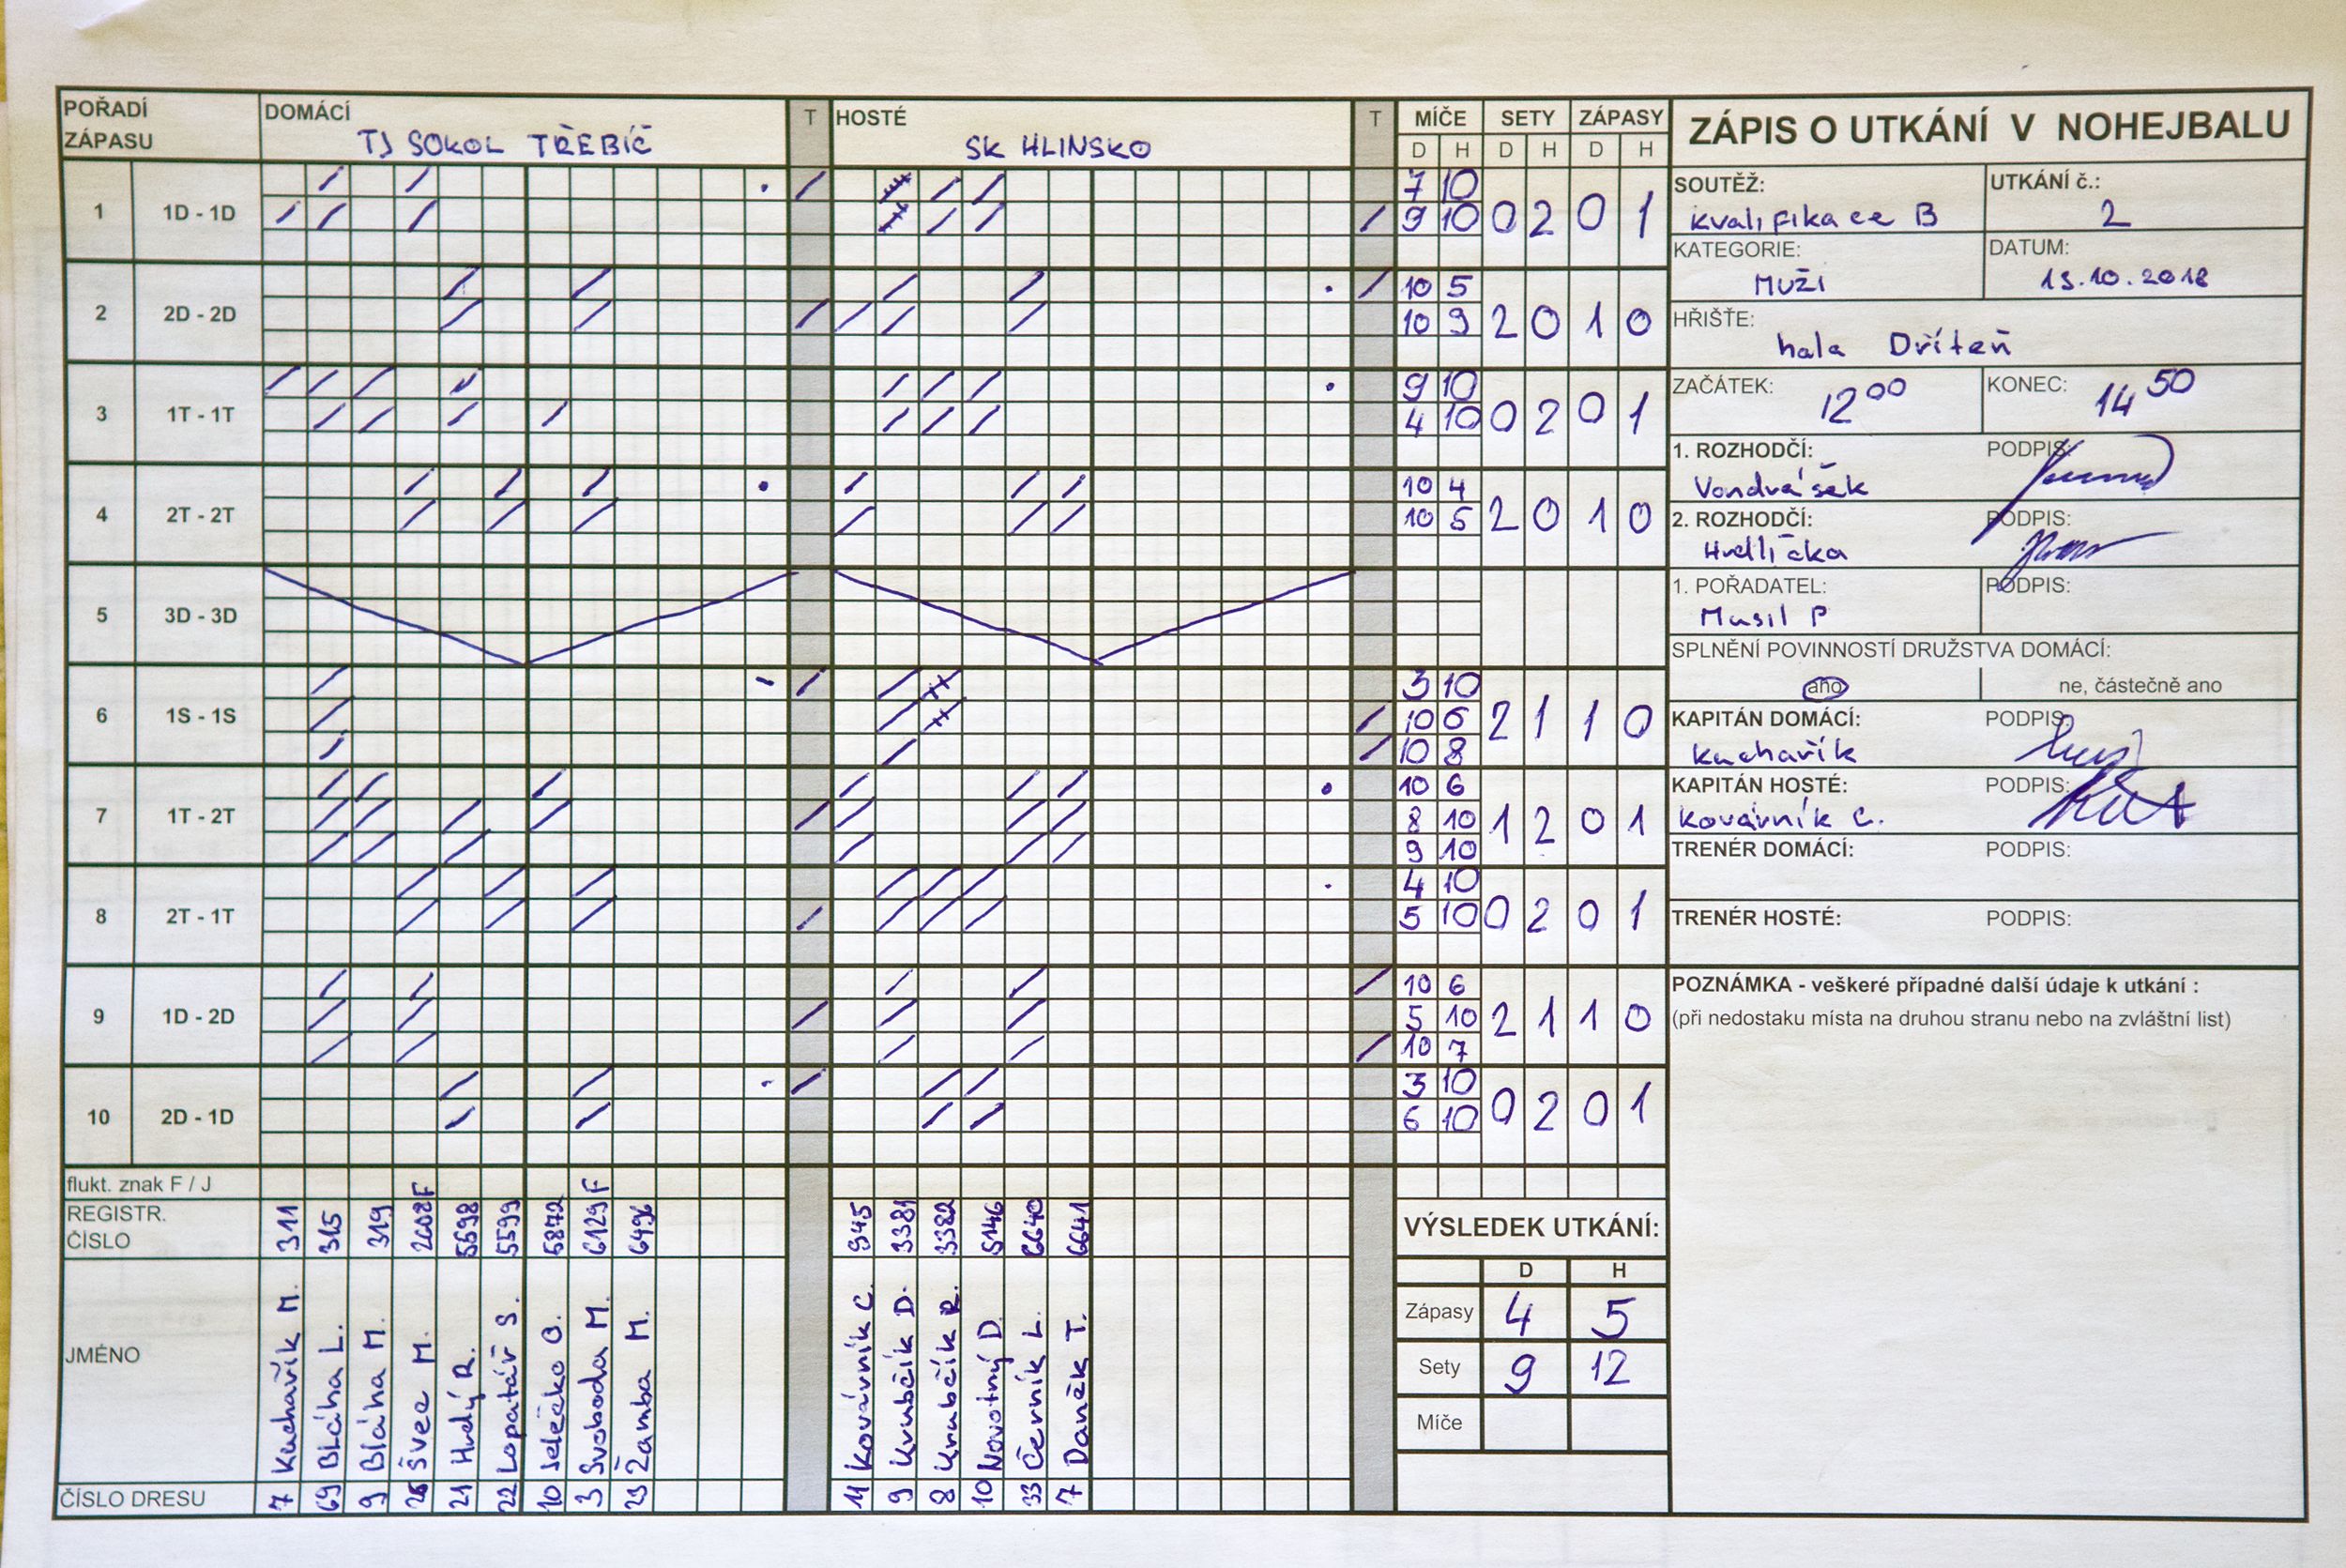 POŘADÍ ZÁPASU DOMÁCÍ T HOSTÉ T MÍČE SETY ZÁPASY
TJ SOKOL TŘEBÍČ SK HLINSKO D H D H D H
1 1D - 1D 7 10 0 2 0 1
9 10
2 2D - 2D 10 5 2 0 1 0
10 9
3 1T - 1T 9 10 0 2 0 1
4 10
4 2T - 2T 10 4 2 0 1 0
10 5
5 3D - 3D
6 1S - 1S 3 10 2 1 1 0
10 6
10 8
7 1T - 2T 10 6 1 2 0 1
8 10
9 10
8 2T - 1T 4 10 0 2 0 1
5 10
9 1D - 2D 10 6 2 1 1 0
5 10
10 7
10 2D - 1D 3 10 0 2 0 1
6 10
flukt. znak F / J F F
REGISTR. ČÍSLO 311 315 319 2008 5698 5599 5872 6129 6496 945 3381 3382 5146 6640 6641
JMÉNO
Kuchařík M.
Bláha L.
Bláha M.
Švec M.
Hrdý R.
Lopatář S.
Jelečko O.
Svoboda M.
Žamba M.
Kovárník C.
Krubčík D.
Krubčík R.
Novotný D.
Černík L.
Daněk T.
ČÍSLO DRESU 7 69 9 26 21 22 10 3 23 11 9 8 10 33 7
VÝSLEDEK UTKÁNÍ:
D H
Zápasy 4 5
Sety 9 12
Míče
ZÁPIS O UTKÁNÍ V NOHEJBALU
SOUTĚŽ: UTKÁNÍ č.:
kvalifikace B 2
KATEGORIE: DATUM:
MUŽI 13.10.2018
HŘIŠTĚ:
hala Dříteň
ZAČÁTEK: 12 00 KONEC: 14 50
1. ROZHODČÍ: PODPIS:
Vondrášek
2. ROZHODČÍ: PODPIS:
Hrdlička
1. POŘADATEL: PODPIS:
Musil P
SPLNĚNÍ POVINNOSTÍ DRUŽSTVA DOMÁCÍ:
ano ne, částečně ano
KAPITÁN DOMÁCÍ: PODPIS:
Kuchařík
KAPITÁN HOSTÉ: PODPIS:
Kovárník C.
TRENÉR DOMÁCÍ: PODPIS:
TRENÉR HOSTÉ: PODPIS:
POZNÁMKA - veškeré případné další údaje k utkání :
(při nedostaku místa na druhou stranu nebo na zvláštní list)